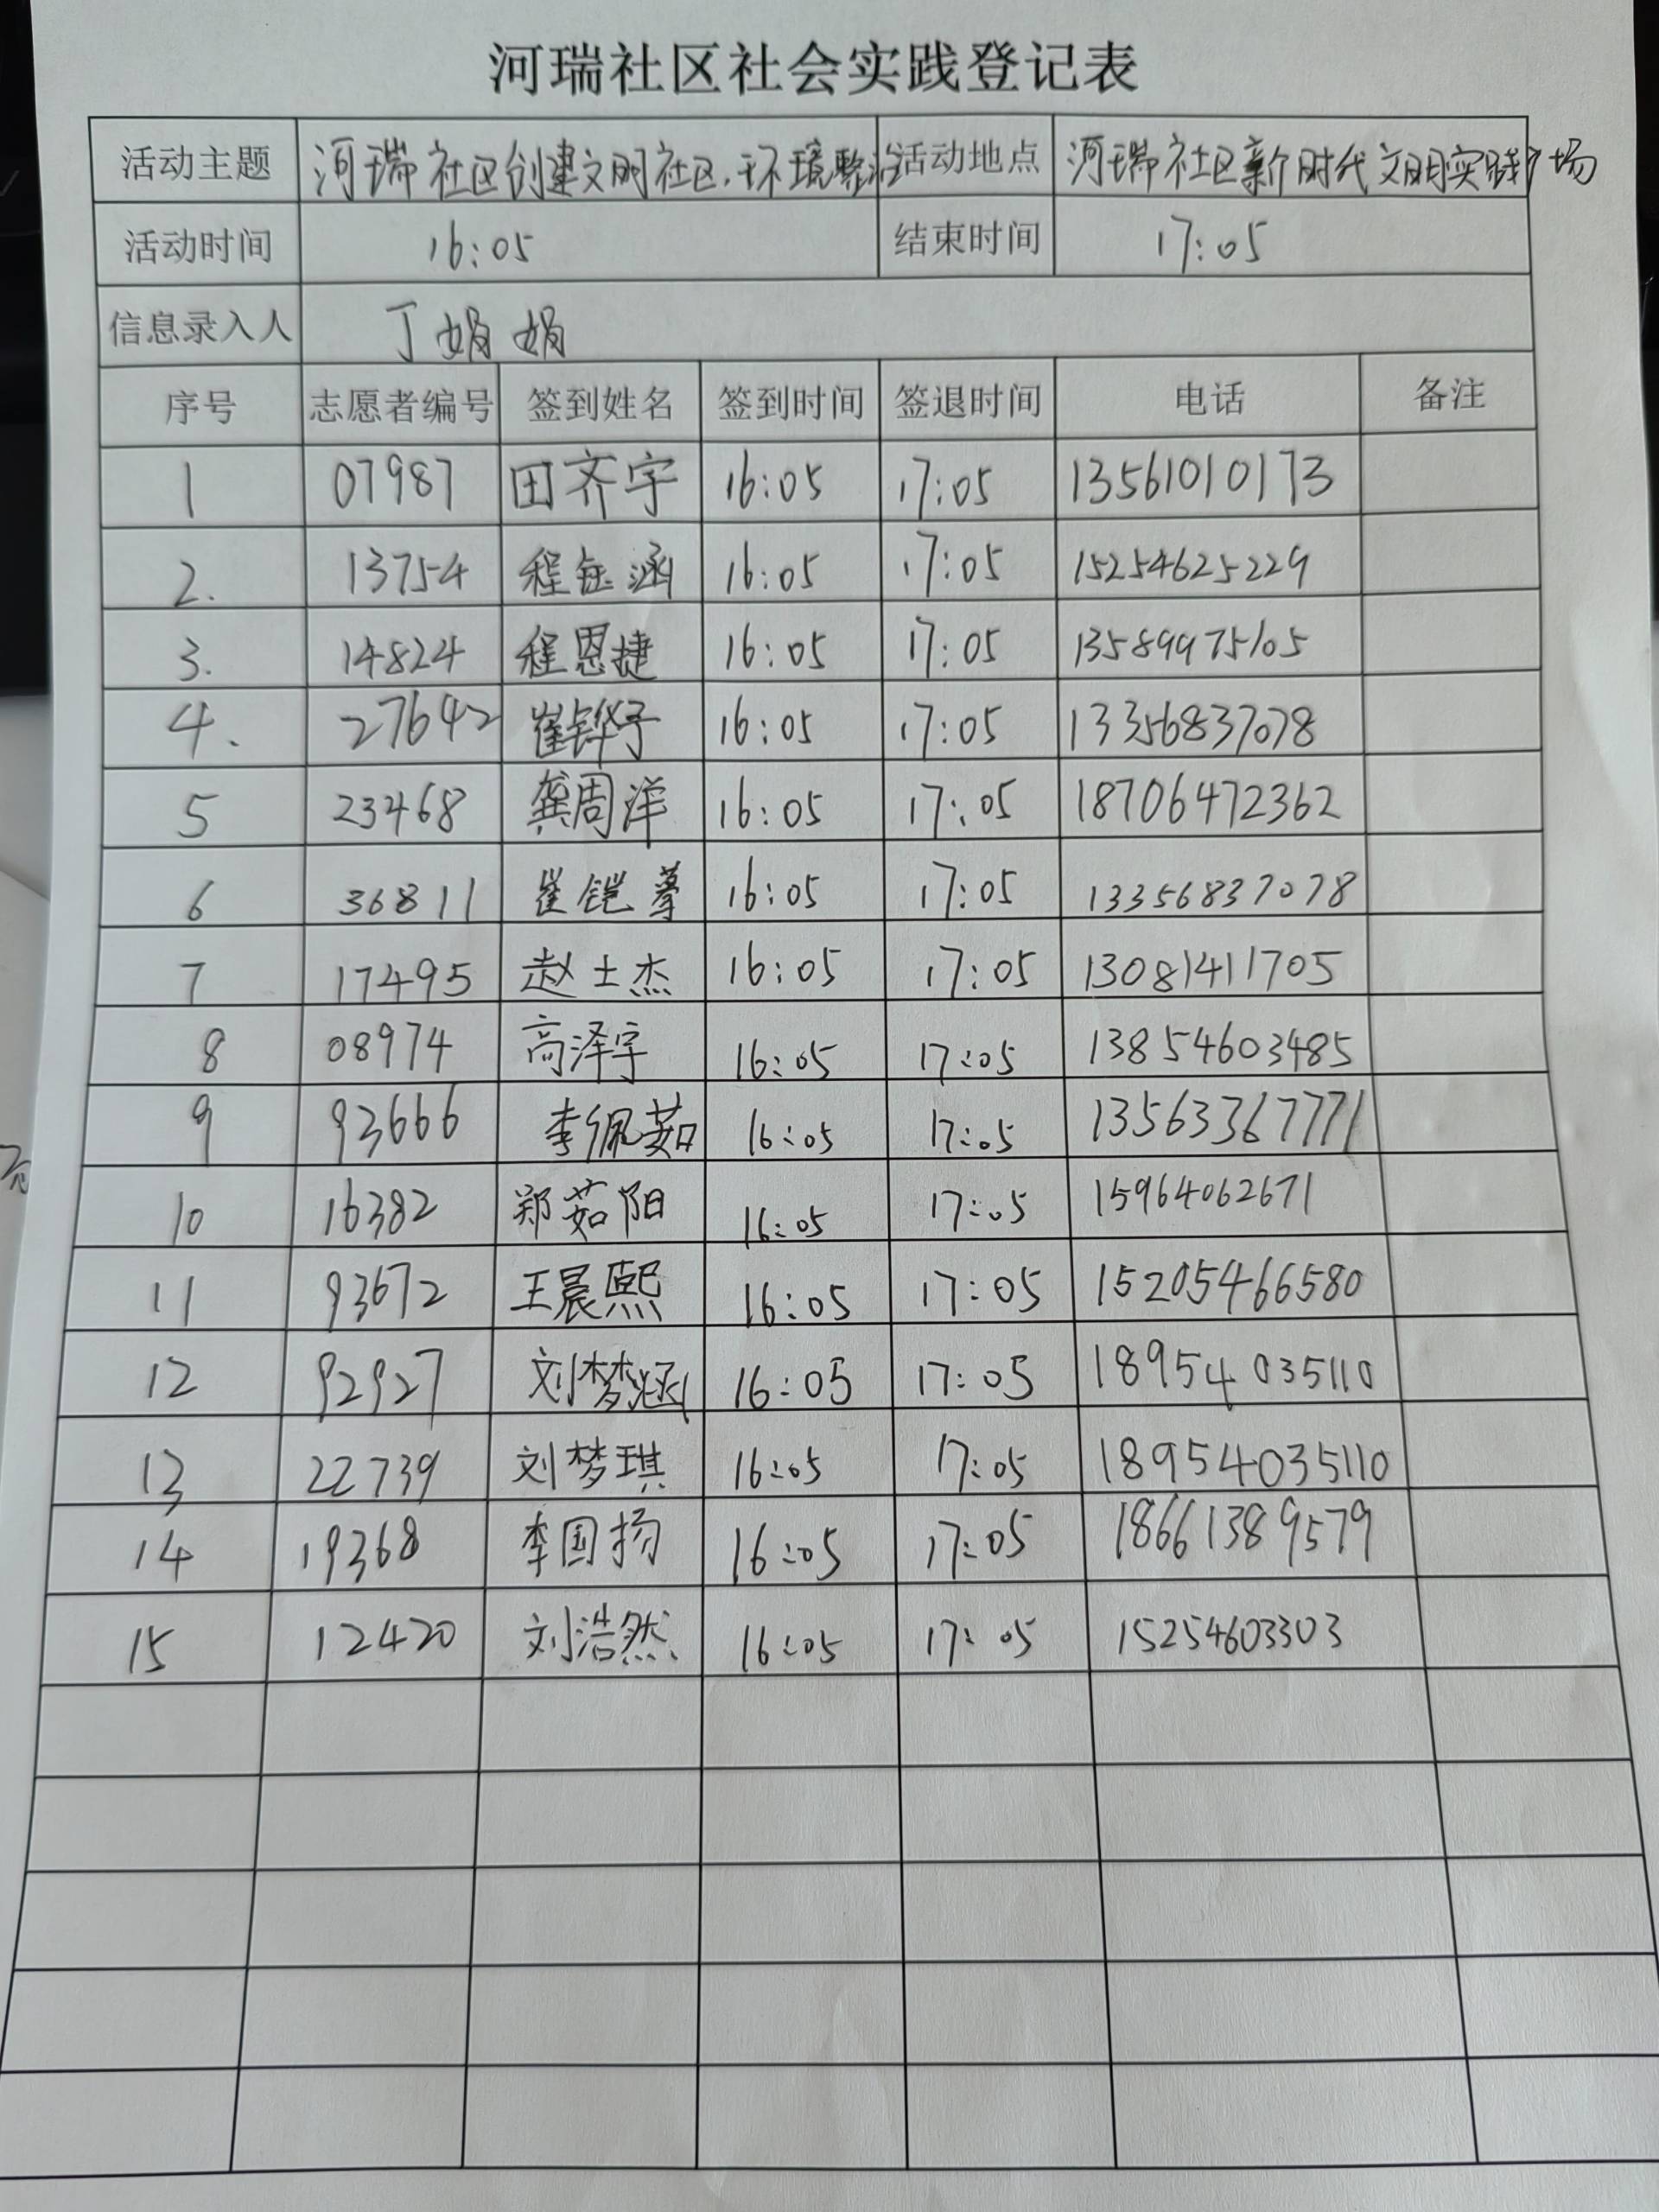 河瑞社区社会实践登记表
活动主题 河瑞社区创建文明社区.环境整治 活动地点 河瑞社区新时代文明实践广场
活动时间 16:05 结束时间 17:05
信息录入人 丁娟娟
序号 志愿者编号 签到姓名 签到时间 签退时间 电话 备注
1 07987 田齐宇 16:05 17:05 13561010173
2. 13754 程钰涵 16:05 17:05 15254625229
3. 14824 程恩捷 16:05 17:05 13589975105
4. 27642 崔铧予 16:05 17:05 13356837078
5 23468 龚周洋 16:05 17:05 18706472362
6 36811 崔铠 16:05 17:05 13356837078
7 17495 赵士杰 16:05 17:05 13081411705
8 08974 高泽宇 16:05 17:05 13854603485
9 93666 李佩茹 16:05 17:05 13563367771
10 16382 郑茹阳 16:05 17:05 15964062671
11 93672 王晨熙 16:05 17:05 15205466580
12 92927 刘梦涵 16:05 17:05 18954035110
13 22739 刘梦琪 16:05 17:05 18954035110
14 19368 李国扬 16:05 17:05 18661389579
15 12420 刘浩然 16:05 17:05 15254603303